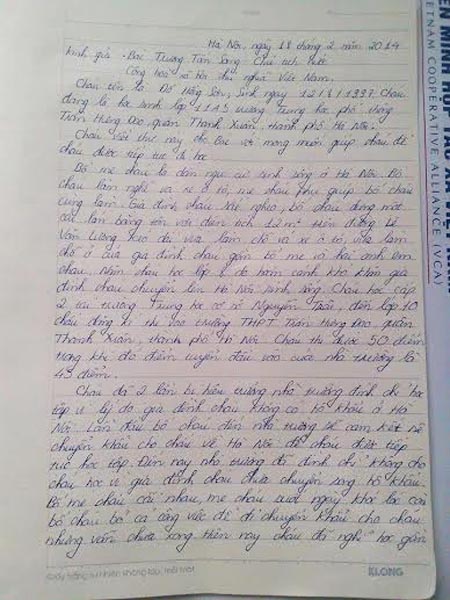 Hà Nội, ngày 18 tháng 2 năm 2014
Kính gửi - Bác Trương Tấn Sang Chủ tịch nước
Cộng hoà xã hội chủ nghĩa Việt Nam.
Cháu tên là Đỗ Hồng Sơn, sinh ngày 12/8/1997 Cháu
đang là học sinh lớp 11A5 trường Trung học phổ thông
Trần Hưng Đạo, quận Thanh Xuân, thành phố Hà Nội.
Cháu viết thư này cho Bác với mong muốn giúp cháu để
cháu được tiếp tục đi học
Bố mẹ cháu là dân ngụ cư sinh sống ở Hà Nội. Bố
cháu làm nghề vá xe ô tô, mẹ cháu phụ giúp bố cháu
cùng làm. Gia đình cháu rất nghèo, bố cháu dựng một
cái lán bằng tôn với diện tích 12m² trên đường Lê
Văn Lương kéo dài vừa làm chỗ vá xe ô tô, vừa làm
chỗ ở của gia đình cháu gồm bố mẹ và hai anh em
cháu. Năm cháu học lớp do hoàn cảnh khó khăn gia
đình cháu chuyển lên Hà Nội sinh sống. Cháu học cấp
2 tại trường Trung học cơ sở Nguyễn Trãi, đến lớp 10
cháu đăng kí thi vào trường THPT Trần Hưng Đạo quận
Thanh Xuân, thành phố Hà Nội. Cháu thi được 50 điểm
trong khi đó điểm tuyển đầu vào của nhà trường là
43 điểm.
Cháu đã 2 lần bị hiệu trưởng nhà trường đình chỉ học
tập vì lý do gia đình cháu không có hộ khẩu ở Hà
Nội. Lần đầu bố cháu đến nhà trường để cam kết sẽ
chuyển khẩu cho cháu về Hà Nội để cháu được tiếp
tục học tập. Đến nay nhà trường đã đình chỉ không cho
cháu học vì gia đình cháu chưa chuyển song hộ khẩu.
Bố mẹ cháu cãi nhau, mẹ cháu suốt ngày khóc lóc còn
bố cháu bỏ cả công việc để đi chuyển khẩu cho cháu
nhưng vẫn chưa xong hiện nay cháu đã nghỉ học gần
KLONG
LIÊN MINH HỢP TÁC XÃ VIỆT NAM
VIETNAM COOPERATIVE ALLIANCE (VCA)